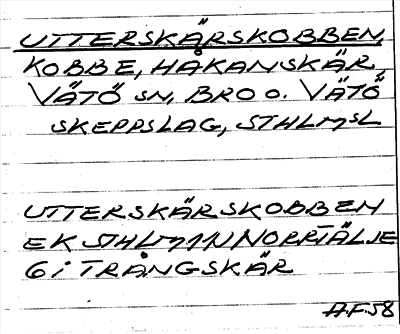 UTTERSKÄRSKOBBEN,
KOBBE, HÅKANSKÄR,
VÄTÖ SN, BRO O. VÄTÖ
SKEPPSLAG, STHLMSL
UTTERSKÄRSKOBBEN
EK STHLM 1N NORRTÄLJE
6 i TRÅNGSKÄR
A.F. 58